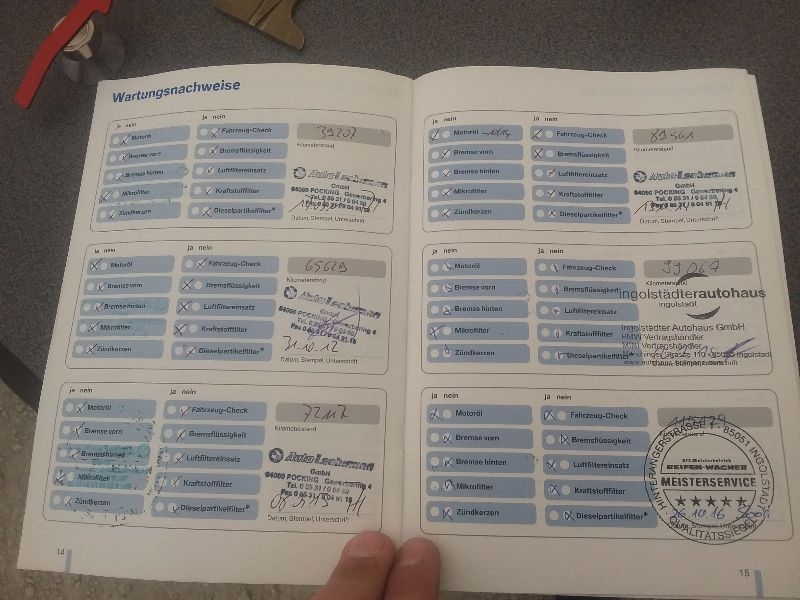 Wartungsnachweise
ja nein ja nein
Motoröl Fahrzeug-Check 39207
Bremse vorn Bremsflüssigkeit Kilometerstand
Bremse hinten Luftfiltereinsatz Auto Lechmann
GmbH
Mikrofilter Kraftstofffilter 94060 POCKING Gewerbering 4
Tel. 0 85 31 / 9 04 90
Fax 0 85 31 / 9 04 91 16
Zündkerzen Dieselpartikelfilter* Datum, Stempel, Unterschrift
ja nein ja nein
Motoröl Fahrzeug-Check 65629
Bremse vorn Bremsflüssigkeit Kilometerstand
Bremse hinten Luftfiltereinsatz Auto Lechmann
GmbH
Mikrofilter Kraftstofffilter 94060 POCKING Gewerbering 4
Tel. 0 85 31 / 9 04 90
Fax 0 85 31 / 9 04 91 16
31.10.12
Zündkerzen Dieselpartikelfilter* Datum, Stempel, Unterschrift
ja nein ja nein
Motoröl Fahrzeug-Check
Bremse vorn Bremsflüssigkeit Kilometerstand
Bremse hinten Luftfiltereinsatz Auto Lechmann
GmbH
Mikrofilter Kraftstofffilter 94060 POCKING Gewerbering 4
Tel. 0 85 31 / 9 04 90
Fax 0 85 31 / 9 04 91 16
Zündkerzen Dieselpartikelfilter* Datum, Stempel, Unterschrift
14
ja nein ja nein
Motoröl Fahrzeug-Check 89561
Bremse vorn Bremsflüssigkeit Kilometerstand
Bremse hinten Luftfiltereinsatz Auto Lechmann
GmbH
Mikrofilter Kraftstofffilter 94060 POCKING Gewerbering 4
Tel. 0 85 31 / 9 04 90
Fax 0 85 31 / 9 04 91 16
Zündkerzen Dieselpartikelfilter* Datum, Stempel, Unterschrift
ja nein ja nein
Motoröl Fahrzeug-Check 99067
Bremse vorn Bremsflüssigkeit Kilometerstand
ingolstädterautohaus
Bremse hinten Luftfiltereinsatz ingolstadt
Mikrofilter Kraftstofffilter Ingolstädter Autohaus GmbH
BMW Vertragshändler
MINI Vertragshändler
Zündkerzen Dieselpartikelfilter* Manchinger Straße 110 · 85053 Ingolstadt
Datum, Stempel, Unterschrift
ja nein ja nein
Motoröl Fahrzeug-Check
Bremse vorn Bremsflüssigkeit Kilometerstand
Bremse hinten Luftfiltereinsatz KFZ-Meisterbetrieb
REIFEN-WACHER
Mikrofilter Kraftstofffilter MEISTERSERVICE
Zündkerzen Dieselpartikelfilter* 26.10.16
Datum, Stempel, Unterschrift
85051 INGOLSTADT
QUALITÄTSSIEGEL
15